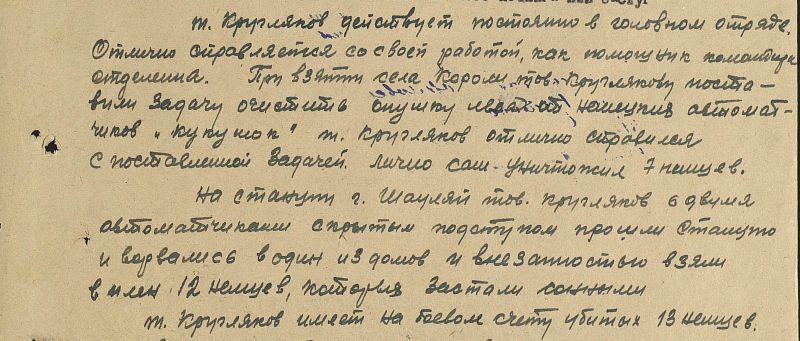 т. Кругляков действует постоянно в головном отряде.
Отлично справляется со своей работой, как помощник командира
отделения. При взятии села Короли тов. Круглякову поста-
вили задачу очистить опушку леса от немецких автомат-
чиков "кукушек" т. Кругляков отлично справился
с поставленной задачей. лично сам уничтожил 7 немцев.
на станции г. Шауляй тов. Кругляков с двумя
автоматчиками скрытым подступом прошли станцию
и ворвались в один из домов и внезапностью взяли
в плен 12 немцев, которых застали сонными
т. Кругляков имеет на боевом счету убитых 13 немцев.